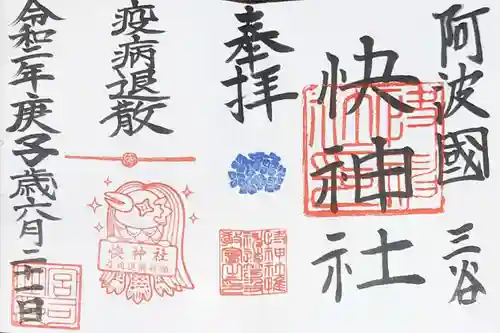 阿波國 三谷
快神社
奉拝
疫病退散
快神社
令和二年庚子歳六月二十一日